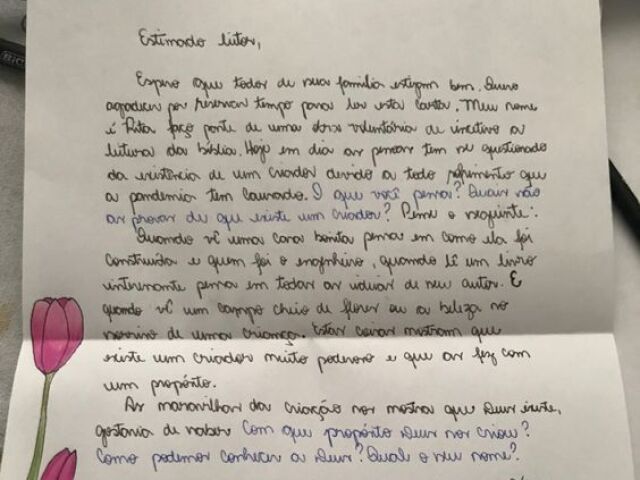 Estimado leitor,
Espero que todos de sua família estejam bem. Quero
agradecer por reservar tempo para ler esta carta. Meu nome
é Rita faço parte de uma obra voluntária de incetivo a
leitura da bíblia. Hoje em dia as pessoas tem se questionado
da existência de um criador devido a todo sofrimento que
a pandemia tem causado. O que você pensa? Quais são
as provas de que existe um criador? Pense o seguinte:
Quando vê uma casa bonita pensa em como ela foi
construída e quem foi o engenheiro, quando lê um livro
interessante pensa em todas as ideias de seu autor. E
quando vê um campo cheio de flores ou a beleza no
sorriso de uma criança. Estas coisas mostram que
existe um criador muito poderoso e que as fez com
um propósito.
As maravilhas da criação nos mostra que Deus existe,
gostaria de saber com que propósito Deus nos criou?
Como podemos conhecer a Deus? Qual o seu nome?